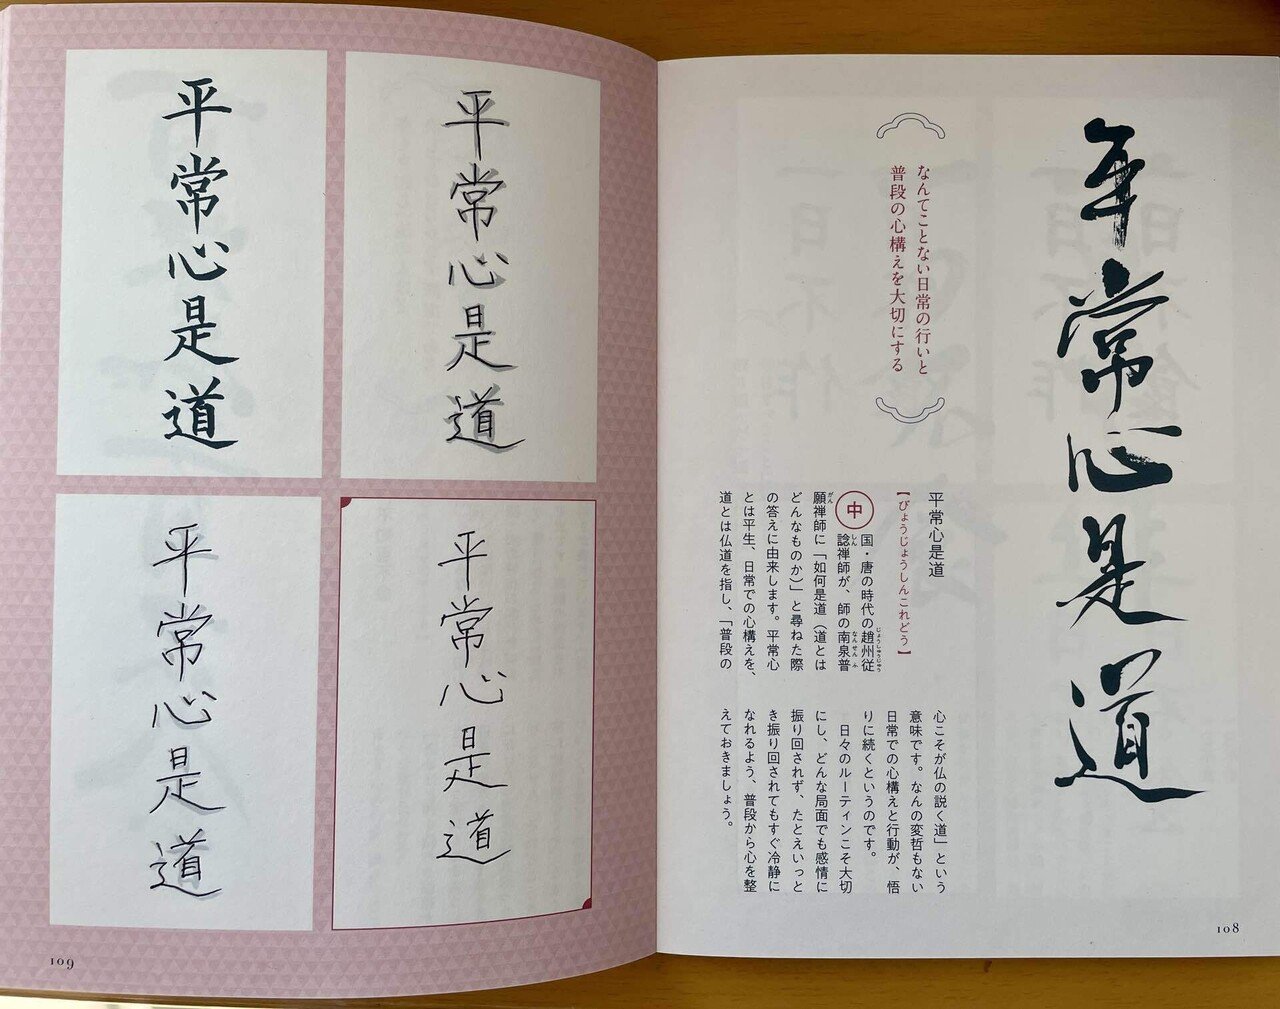 平常心是道
なんてことない日常の行いと
普段の心構えを大切にする
平常心是道
【びょうじょうしんこれどう】
中国・唐の時代の趙州従
諗禅師が、師の南泉普
願禅師に「如何是道（道とは
どんなものか）」と尋ねた際
の答えに由来します。平常心
とは平生、日常での心構えを、
道とは仏道を指し、「普段の
心こそが仏の説く道」という
意味です。なんの変哲もない
日常での心構えと行動が、悟
りに続くというのです。
日々のルーティンこそ大切
にし、どんな局面でも感情に
振り回されず、たとえいっと
き振り回されてもすぐ冷静に
なれるよう、普段から心を整
えておきましょう。
108
平常心是道
平常心是道
平常心是道
平常心是道
109